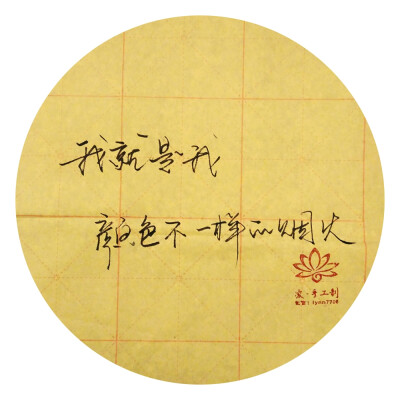 我就是我
颜色不一样的烟火
手工制